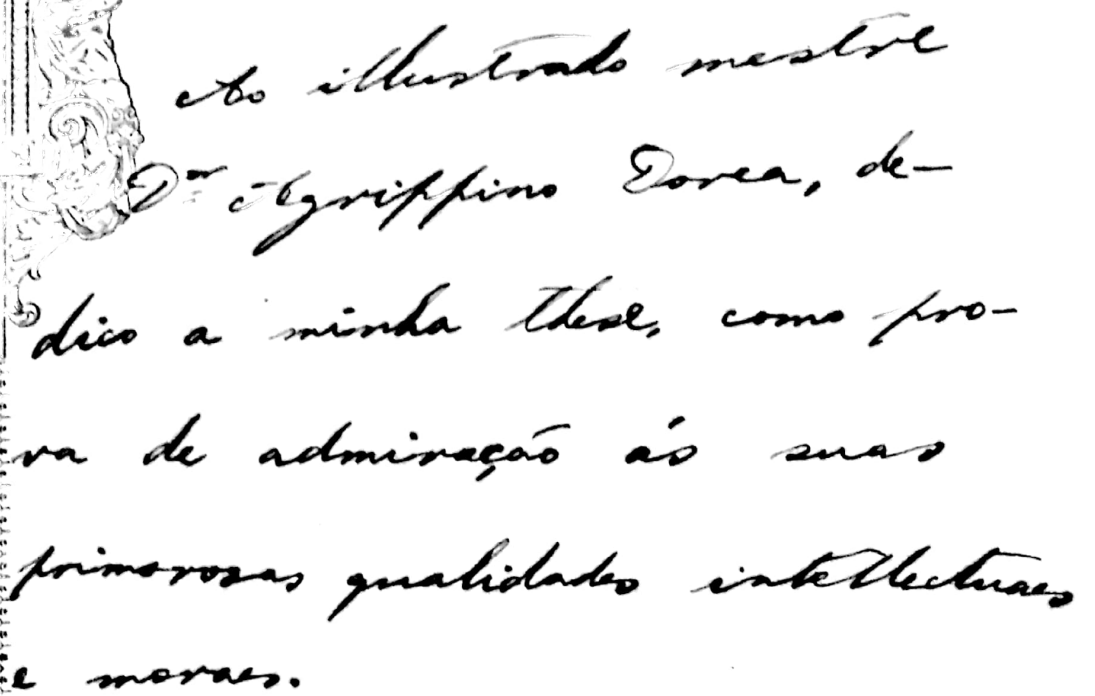 Ao illustrado mestre
Dor Agrippino Dorea, de-
dico a minha these, como pro-
va de admiração ás suas
primorosas qualidades intellectuaes
e moraes.